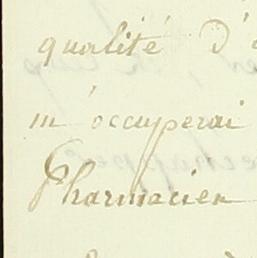 qualité d'
m'occuperai
Pharmacien